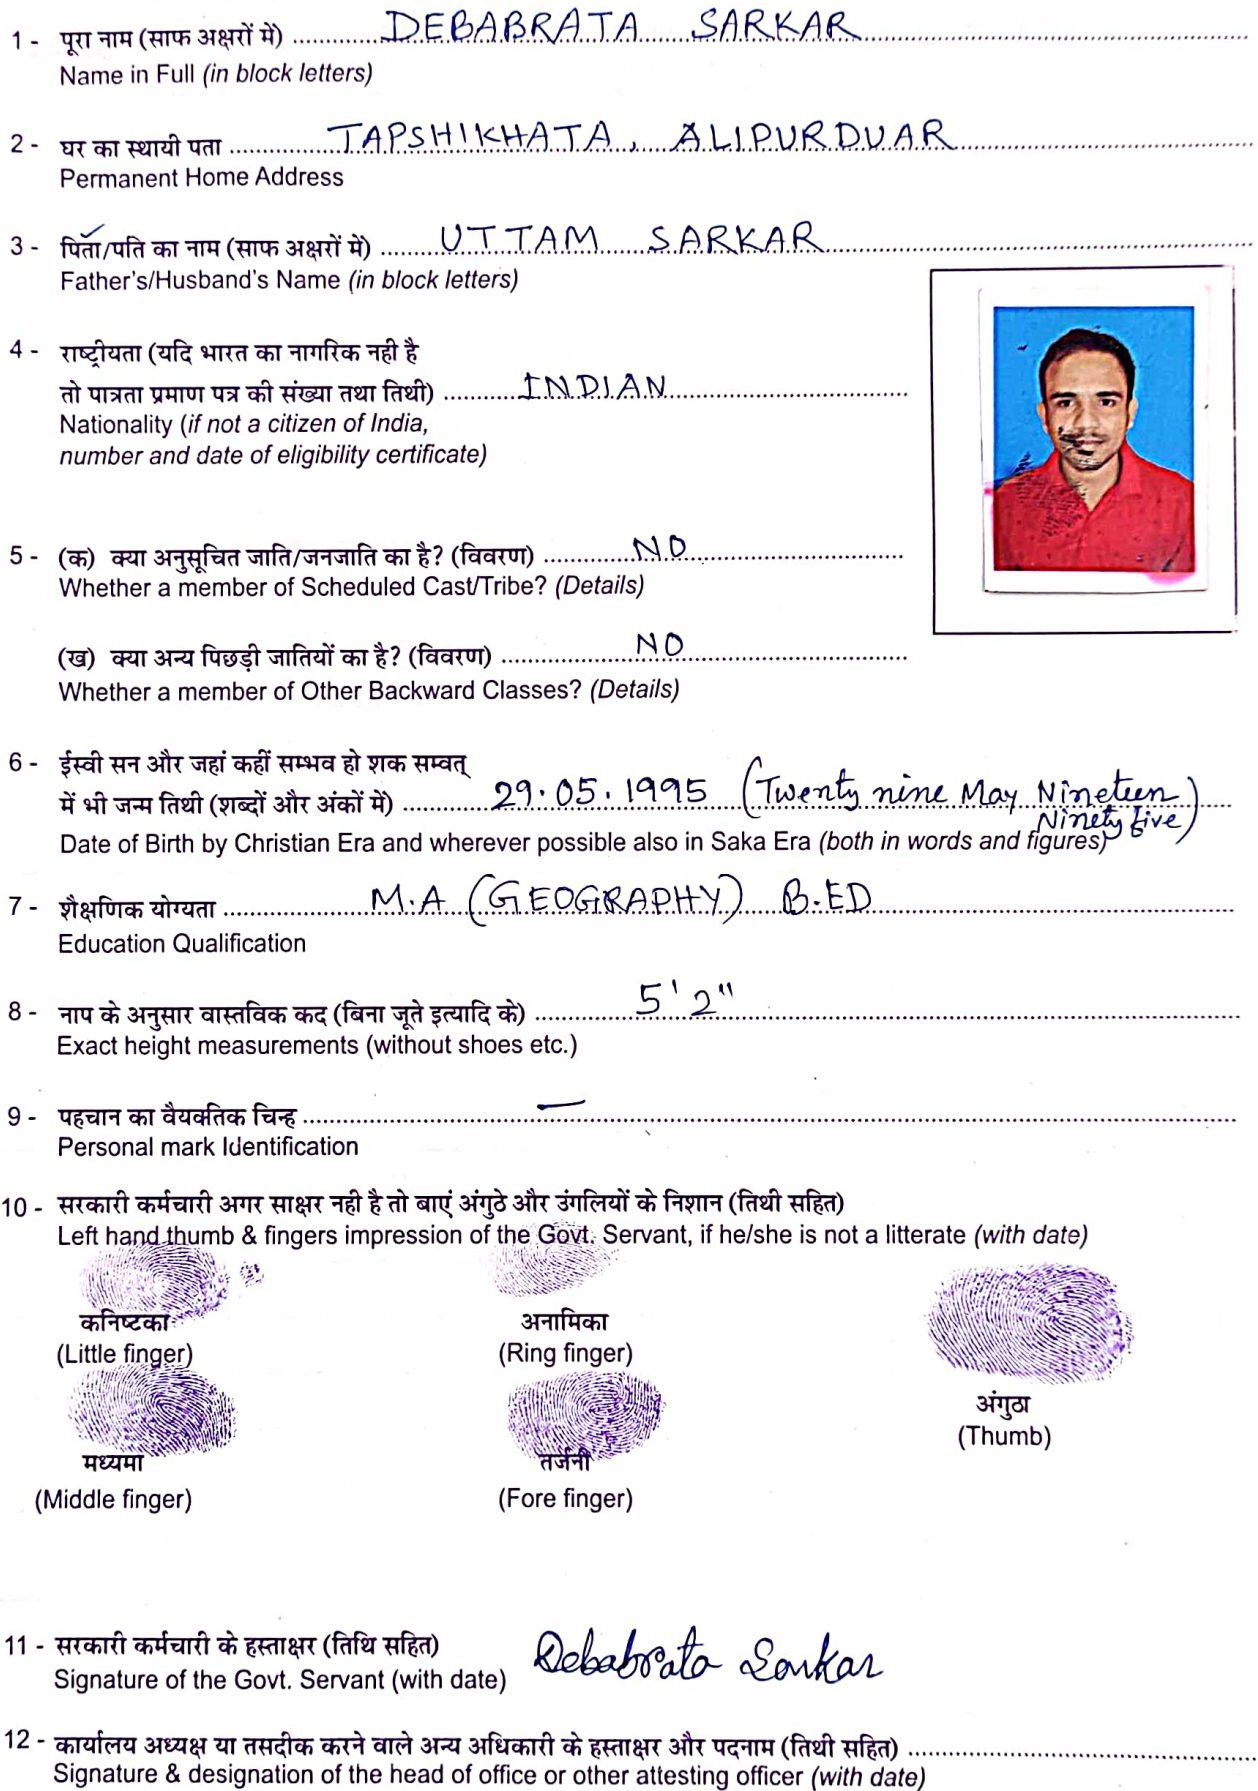 1 - पूरा नाम (साफ अक्षरों में) DEBABRATA SARKAR
Name in Full (in block letters)
2 - घर का स्थायी पता TAPSHIKHATA, ALIPURDUAR
Permanent Home Address
3 - पिता/पति का नाम (साफ अक्षरों में) UTTAM SARKAR
Father's/Husband's Name (in block letters)
4 - राष्ट्रीयता (यदि भारत का नागरिक नही है
तो पात्रता प्रमाण पत्र की संख्या तथा तिथी) INDIAN
Nationality (if not a citizen of India,
number and date of eligibility certificate)
5 - (क) क्या अनुसूचित जाति/जनजाति का है? (विवरण) NO
Whether a member of Scheduled Cast/Tribe? (Details)
(ख) क्या अन्य पिछड़ी जातियों का है? (विवरण) NO
Whether a member of Other Backward Classes? (Details)
6 - ईस्वी सन और जहां कहीं सम्भव हो शक सम्वत्
में भी जन्म तिथी (शब्दों और अंकों में) 29.05.1995 (Twenty nine May Nineteen
Ninety five)
Date of Birth by Christian Era and wherever possible also in Saka Era (both in words and figures)
7 - शैक्षणिक योग्यता M.A (GEOGRAPHY) B.ED
Education Qualification
8 - नाप के अनुसार वास्तविक कद (बिना जूते इत्यादि के) 5'2"
Exact height measurements (without shoes etc.)
9 - पहचान का वैयक्तिक चिन्ह —
Personal mark Identification
10 - सरकारी कर्मचारी अगर साक्षर नही है तो बाएं अंगुठे और उंगलियों के निशान (तिथी सहित)
Left hand thumb & fingers impression of the Govt. Servant, if he/she is not a litterate (with date)
कनिष्टका अनामिका
(Little finger) (Ring finger)
अंगुठा
(Thumb)
मध्यमा तर्जनी
(Middle finger) (Fore finger)
11 - सरकारी कर्मचारी के हस्ताक्षर (तिथि सहित) Debabrata Sarkar
Signature of the Govt. Servant (with date)
12 - कार्यालय अध्यक्ष या तसदीक करने वाले अन्य अधिकारी के हस्ताक्षर और पदनाम (तिथी सहित)
Signature & designation of the head of office or other attesting officer (with date)